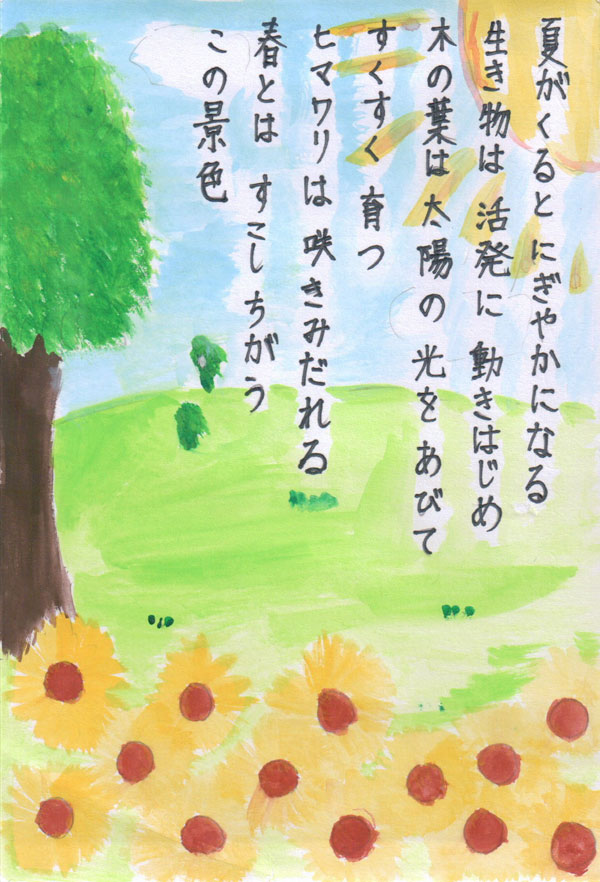 夏がくるとにぎやかになる
生き物は活発に動きはじめ
木の葉は太陽の光をあびて
すくすく育つ
ヒマワリは咲きみだれる
春とは すこしちがう
この景色